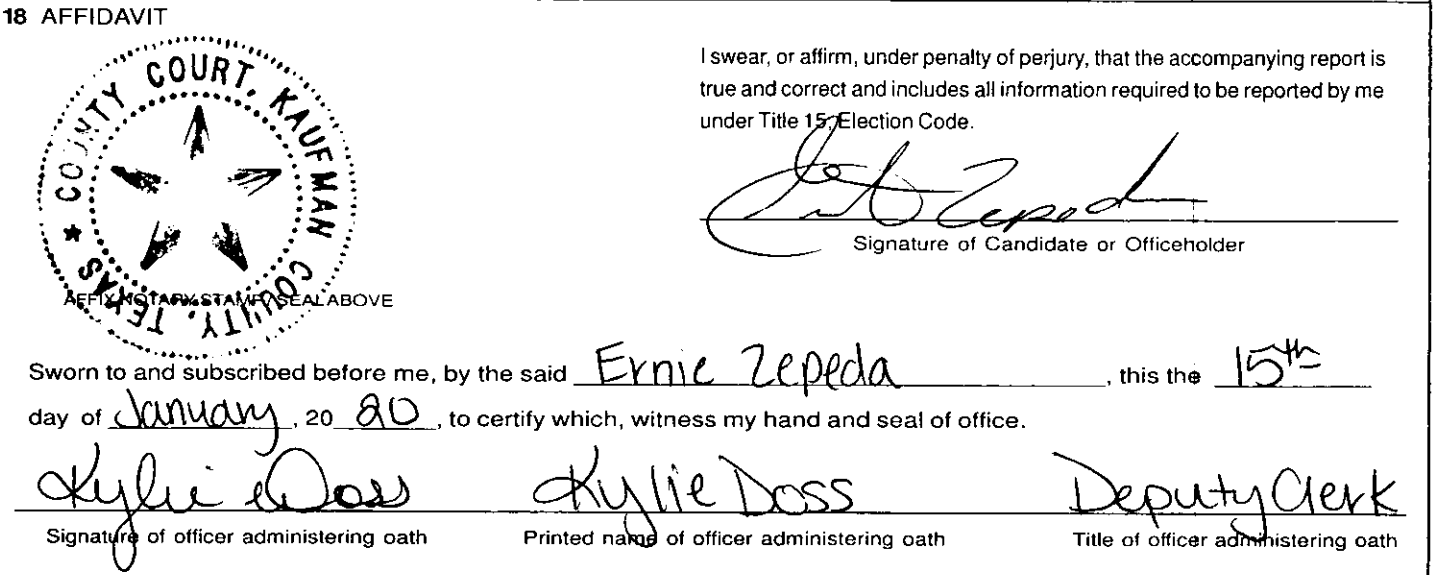 18 AFFIDAVIT
COUNTY COURT, KAUFMAN COUNTY, TEXAS *
I swear, or affirm, under penalty of perjury, that the accompanying report is
true and correct and includes all information required to be reported by me
under Title 15, Election Code.
Zeped
Signature of Candidate or Officeholder
AFFIX NOTARY STAMP / SEAL ABOVE
Sworn to and subscribed before me, by the said Ernie Zepeda, this the 15th
day of January, 20 20, to certify which, witness my hand and seal of office.
Kylie Doss Kylie Doss Deputy Clerk
Signature of officer administering oath Printed name of officer administering oath Title of officer administering oath